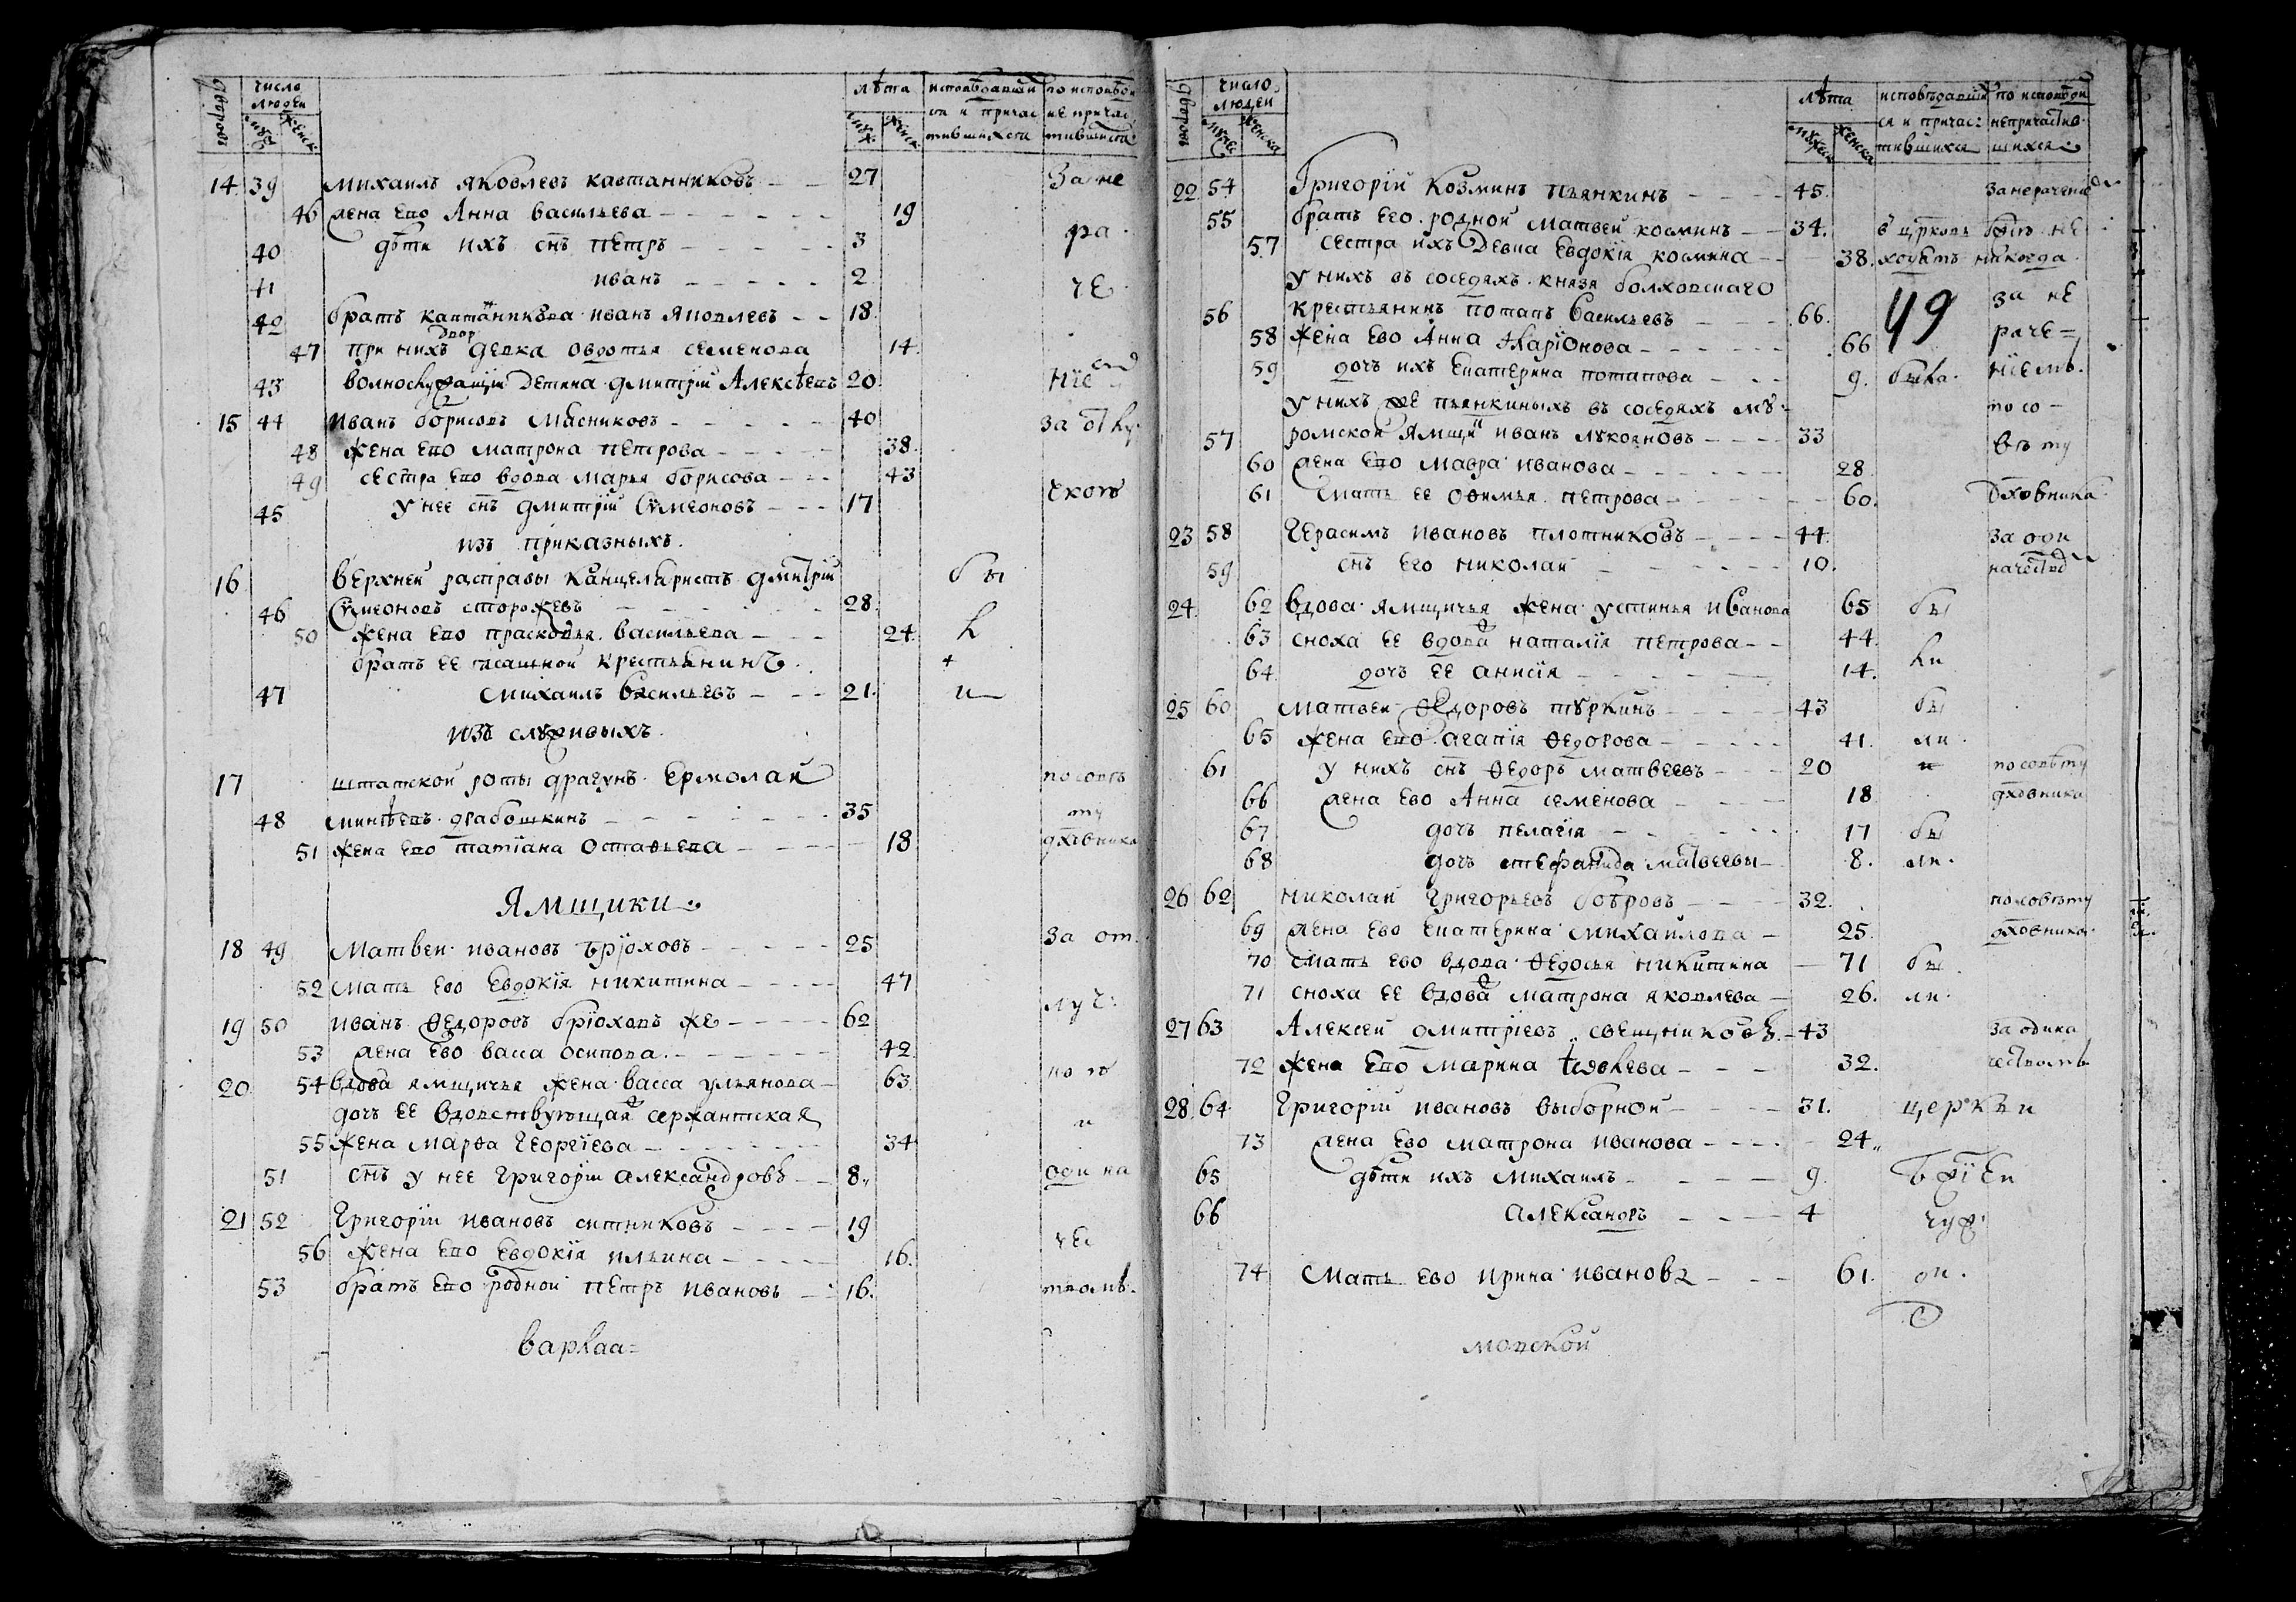 дворовъ число людей лѣта исповѣдавши по исповѣди
муж женск муж женск ся и причас не причас
тившихся тившихся
14 39 михаилъ яковлевъ кавтанниковъ 27 За не
46 жена ево Анна васильева 19
40 дѣти ихъ снъ пѣтръ 3 ра
41 иванъ 2 че
42 братъ кавтаникова иванъ яковлевъ 18
двор
47 при нихъ девка овдотья семенова 14
43 волнослужащiи детина дмитрiи Алексѣевъ 20 нiе
15 44 иванъ борисовъ мясниковъ 40 за отлу
48 жена ево матрона петрова 38
49 сестра ево вдова марья борисова 43
45 у нее снъ дмитрiи Симеоновъ 17
изъ приказныхъ
16 верхней расправы канцеляристъ дмитрiи бы
46 Симеоновъ сторожевъ 28
50 жена ево прасковья васильева 24 л
братъ ее пашной крестьянинъ
47 михаилъ васильевъ 21 и
изъ служивыхъ
17 штатской роты драгунъ Ермолай по совѣ
48 минѣевъ драбошкинъ 35 ту
51 жена ево татiана остафьева 18 дховника
Ямщики
18 49 матвеи ивановъ брюховъ 25 За от
52 мать ево Евдокiя никитина 47 луч
19 50 иванъ ѳедоровъ брiоховъ же 62
53 жена ево васса осипова 42
20 54 вдова ямщичья жена васса ульянова 63
дочь ее вдовствующая сержантская и
55 жена марѳа Георгiева 34
51 снъ у нее григорiи александровъ 8 оди на
21 52 григорiи ивановъ ситниковъ 19
56 жена ево Евдокiя ильина 16 че
53 братъ ево родной петръ ивановъ 16 твомъ
варлаа=
дворовъ число людеи лѣта исповѣдавших по исповѣди
мужес женска мужеск женска ся и причас не причастив
тившихся шихся
22 54 Григорiй Козминъ пьянкинъ 45 За нерачение
55 братъ ево родной матвеи косминъ 34 в црковь бжiю не
57 сестра ихъ девка Евдокiя космина 38 ходятъ никогда
у нихъ въ соседяхъ князя болховскаго
49
56 крестьянинъ потапъ васильевъ 66 за не
58 жена ево Анна Iларiонова 66 раче=
59 дочь ихъ Екатерина потапова 9 была нiемъ
у нихъ же пьянкиныхъ въ соседяхъ му по со-
57 ромской ямщи иванъ лукояновъ 33 вѣ ту
60 жена ево мавра иванова 28
61 мать ее офимья петрова 60 дховника
23 58 Герасимъ ивановъ плотниковъ 44 за оди
59 снъ его николаи 10
24 62 вдова ямщичья жена устинья иванова 65 бы
63 сноха ее вдова наталiя петрова 44
64 дочь ее анисiя 14 ли
25 60 матвеи ѳедоровъ туркинъ 43 бы
65 жена ево агапiя ѳедорова 41 ли
61 у нихъ снъ ѳедоръ матвеевъ 20 по совѣту
66 жена ево Анна семенова 18 дховника
67 дочь пелагiя 17 бы
68 дочь стефанида матвеевы 8 ли
26 62 николаи григорьевъ бобровъ 32 по совѣту
69 жена ево Екатерина михаилова 25 дховника
70 мать ево вдова ѳедосья никитина 71 бы
71 сноха ее вдова матрона яковлева 26 ли
27 63 Алексеи дмитрiевъ свещниковъ 43 За одина
72 жена ево марина 32 чествомъ
28 64 Григорiи ивановъ выборной 31 церкьви
73 жена ево матрона иванова 24
65 дѣти ихъ михаилъ 9 бжiеи
66 александръ 4 чуж
74 мать ево ирина иванова 61
мовской